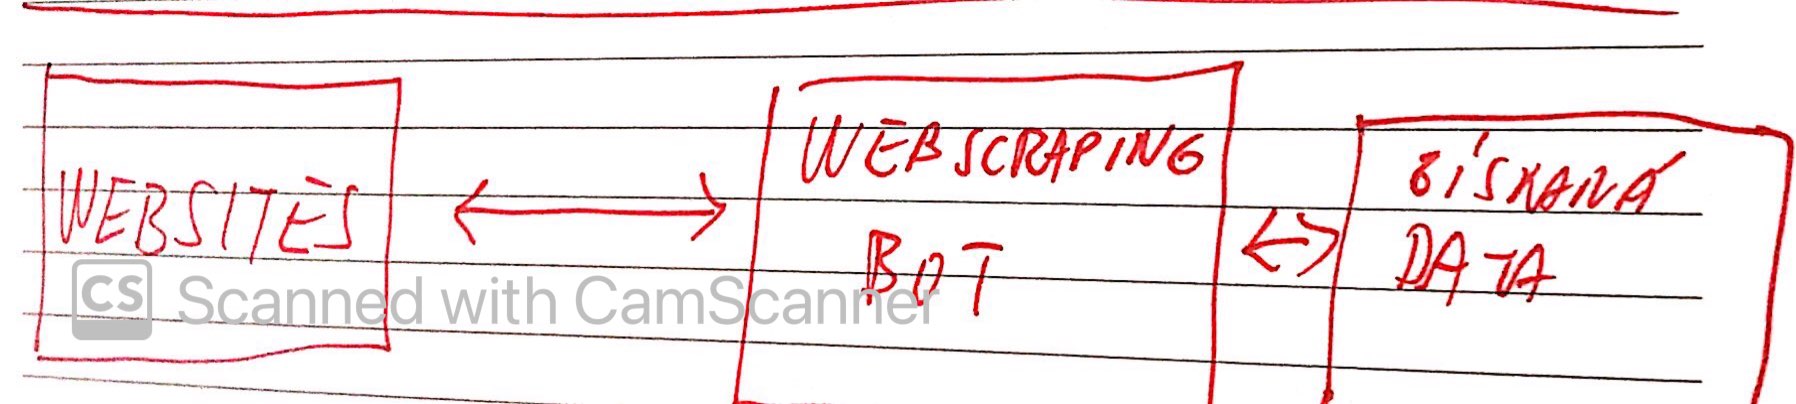 WEBSITES
WEBSCRAPING
BOT
ZÍSKANÁ
DATA
CS Scanned with CamScanner